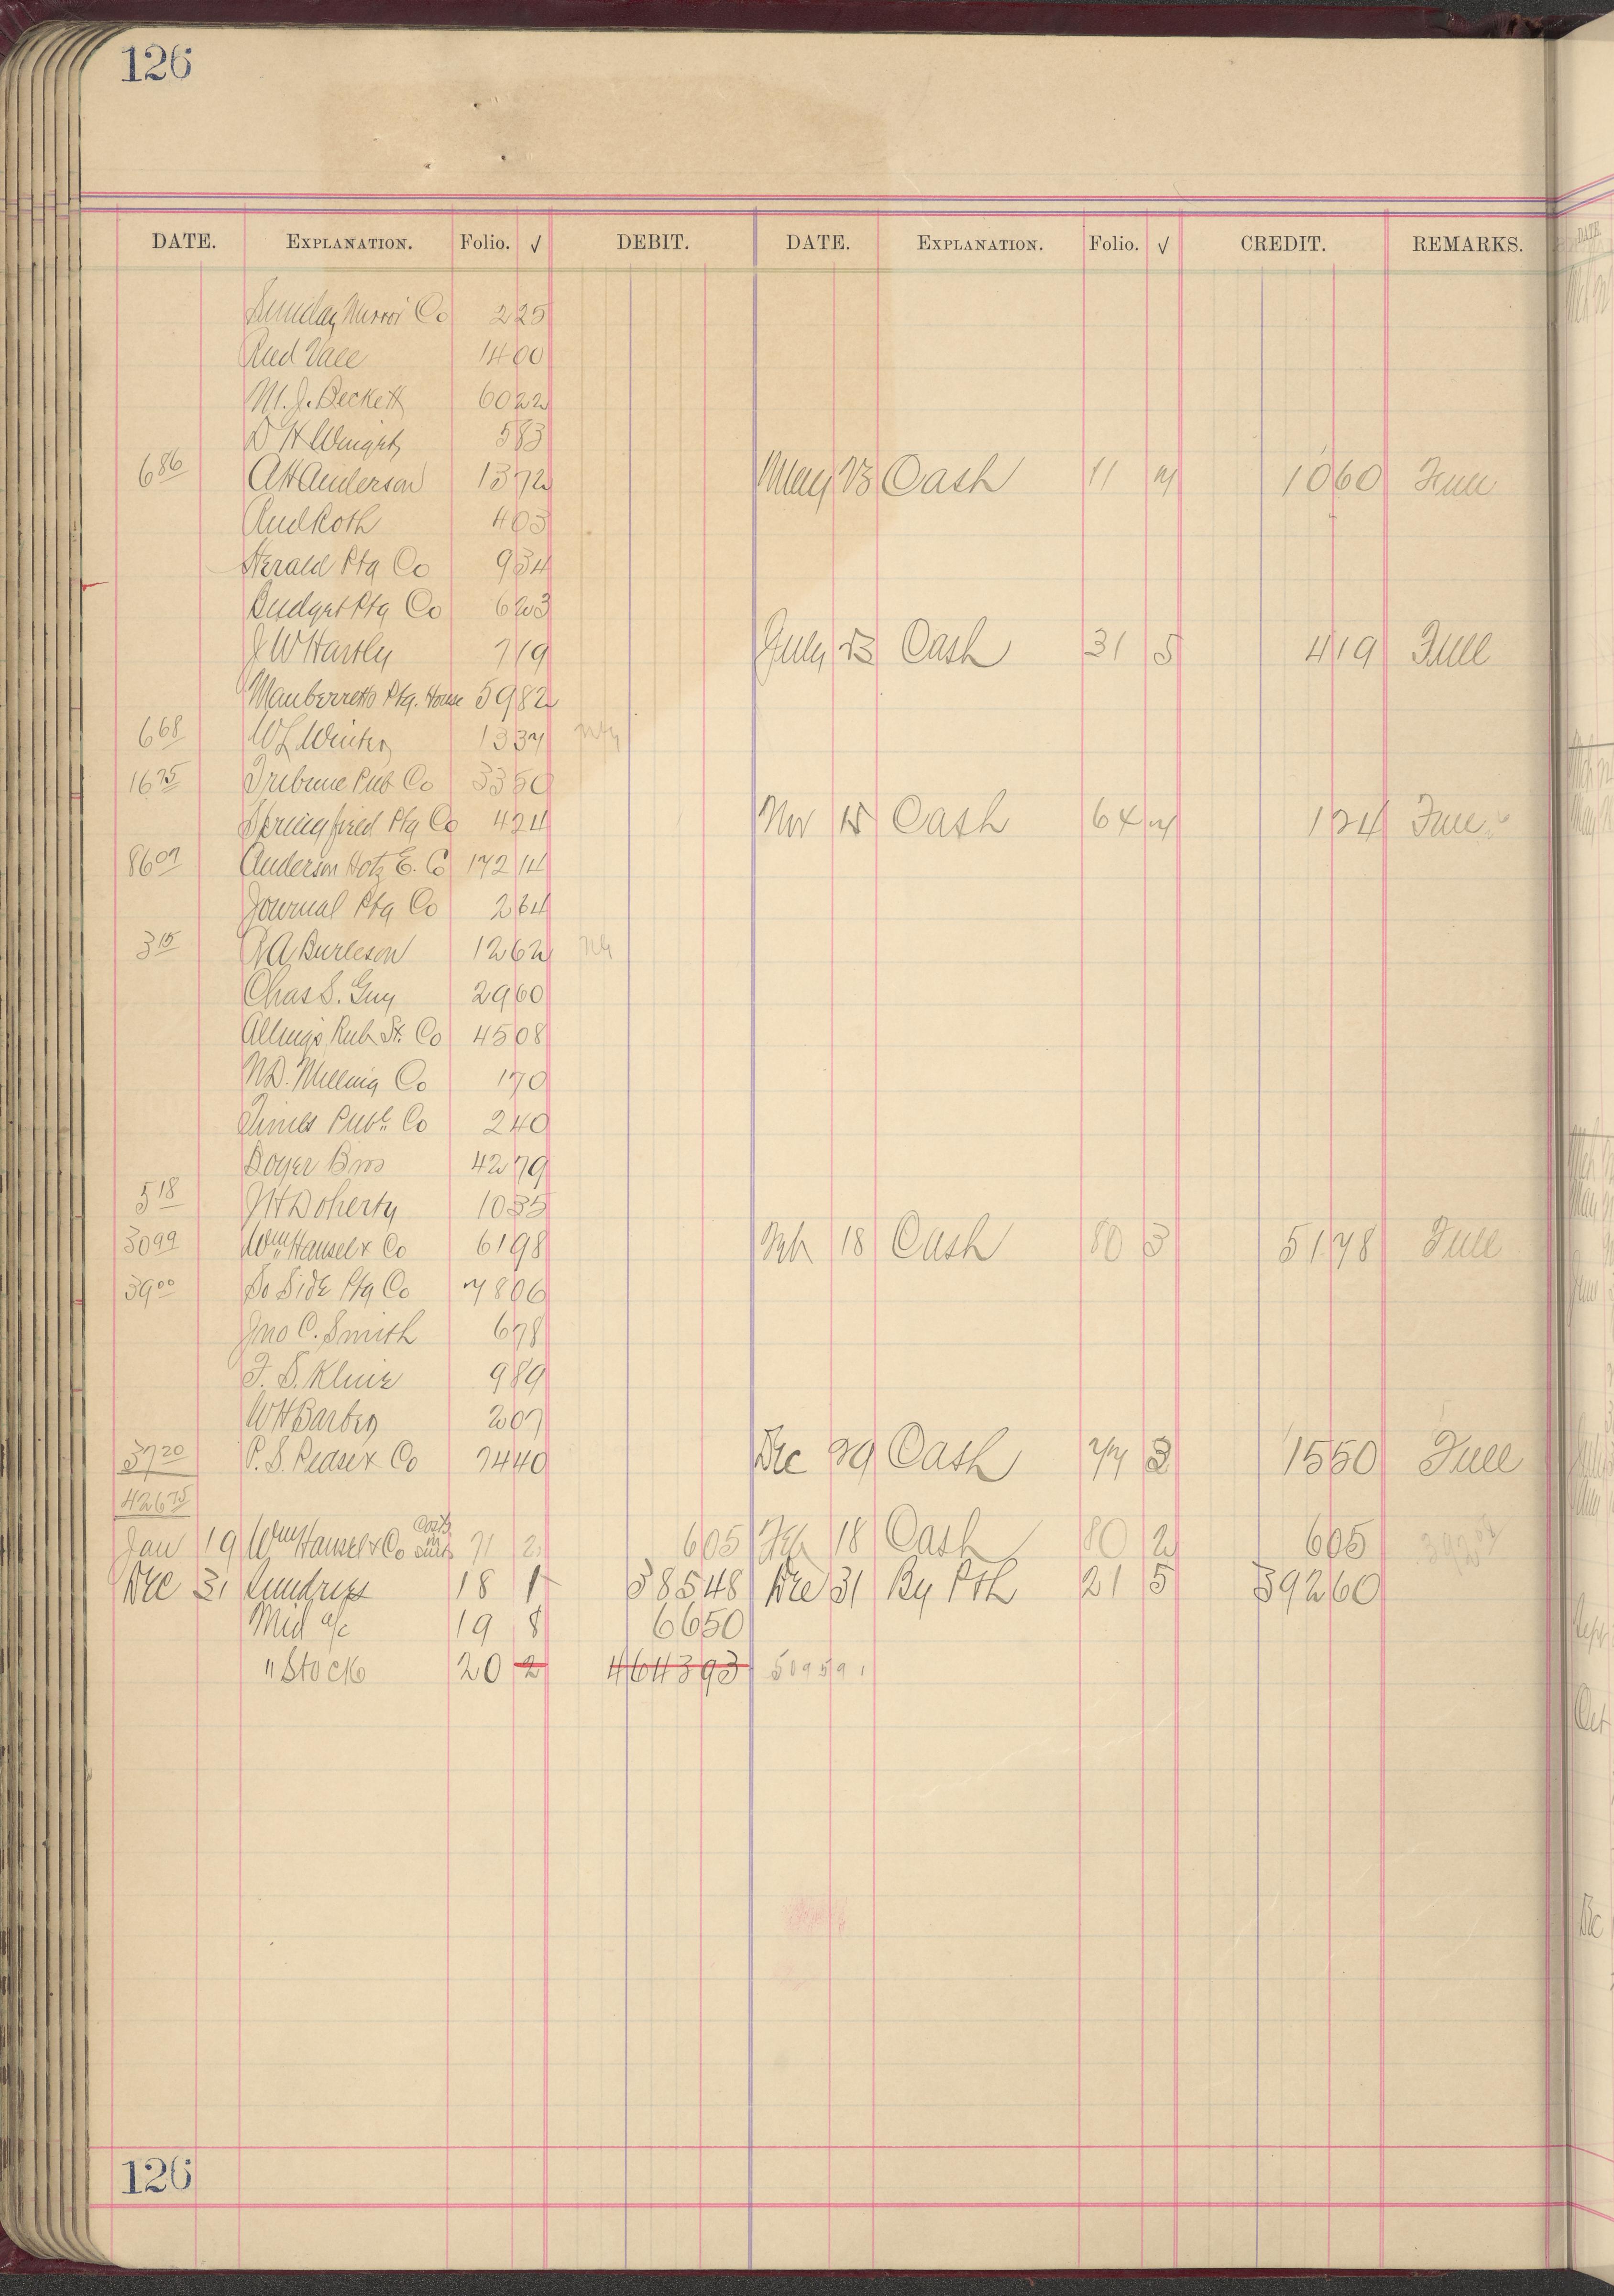 126
DATE. EXPLANATION. Folio. √ DEBIT. DATE. EXPLANATION. Folio. √ CREDIT. REMARKS.
Sunday Mirror Co 225
1400
M. J. Beckett 6022
583
686 A H Anderson 1372 May 23 Cash 11 7 1060 Full
Aud Roth 403
Herald Ptg Co 934
Budget Ptg Co 623
J W Hartly 719 July 23 Cash 31 5 419 Full
Ptg. House 5982
668 W L Winter 1337
1675 Tribune Pub Co 3350
Springfield Ptg Co 424 Nov 15 Cash 64 7 124 Full
8607 Anderson Hotz E. Co 17214
Journal Ptg Co 264
315 A Burleson 1262
Chas S. Guy 2960
Allings Rub St. Co 4508
N.D. Milling Co 170
Times Publ. Co 240
Boyer Bros 4279
518 J H Doherty 1035
3099 Wm Hansel & Co 6198 Feb 18 Cash 80 3 5178 Full
3900 So Side Ptg Co 7806
Jno C. Smith 678
F. S. Kline 989
W H Barber 207
3720 P. S. Pease & Co 7440 Dec 29 Cash 77 3 1550 Full
42675
Jan 19 Wm Hansel & Co Costs in suit 71 2 605 Feb 18 Cash 80 2 605
Dec 31 Sundries 18 1 38548 Dec 31 By 21 5 39260
Mid a/c 19 8 6650
" Stock 20 2 464393 509591
126